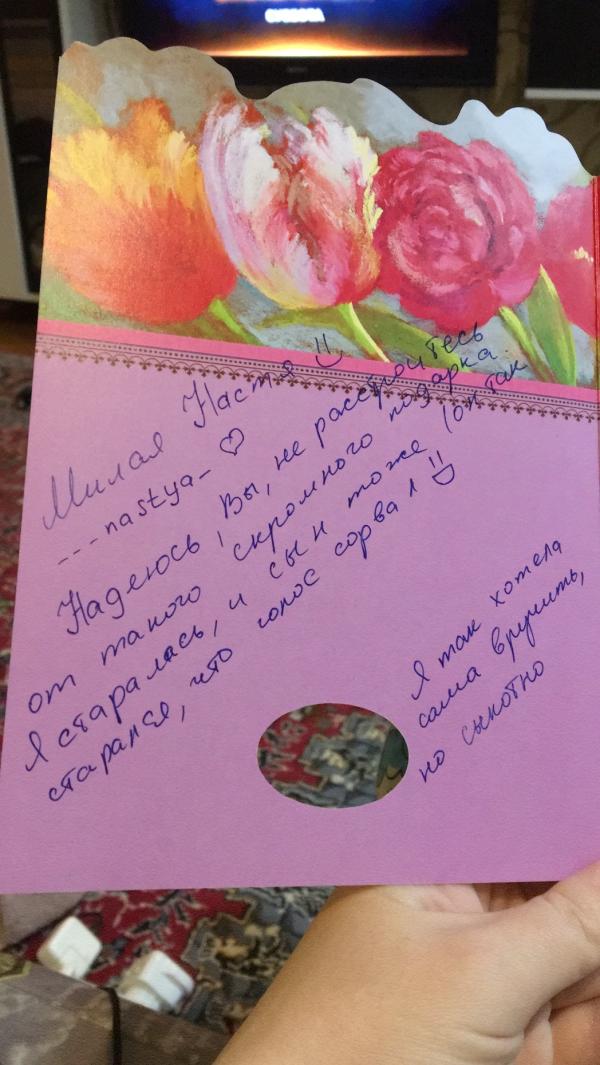 СУББОТА
Милая Настя
---nastya_ ♡
Надеюсь, Вы, не расстроитесь
от такого скромного подарка.
Я старалась, и сын тоже (он так
старался, что голос сорвал
Я так хотела
сама вручить,
но